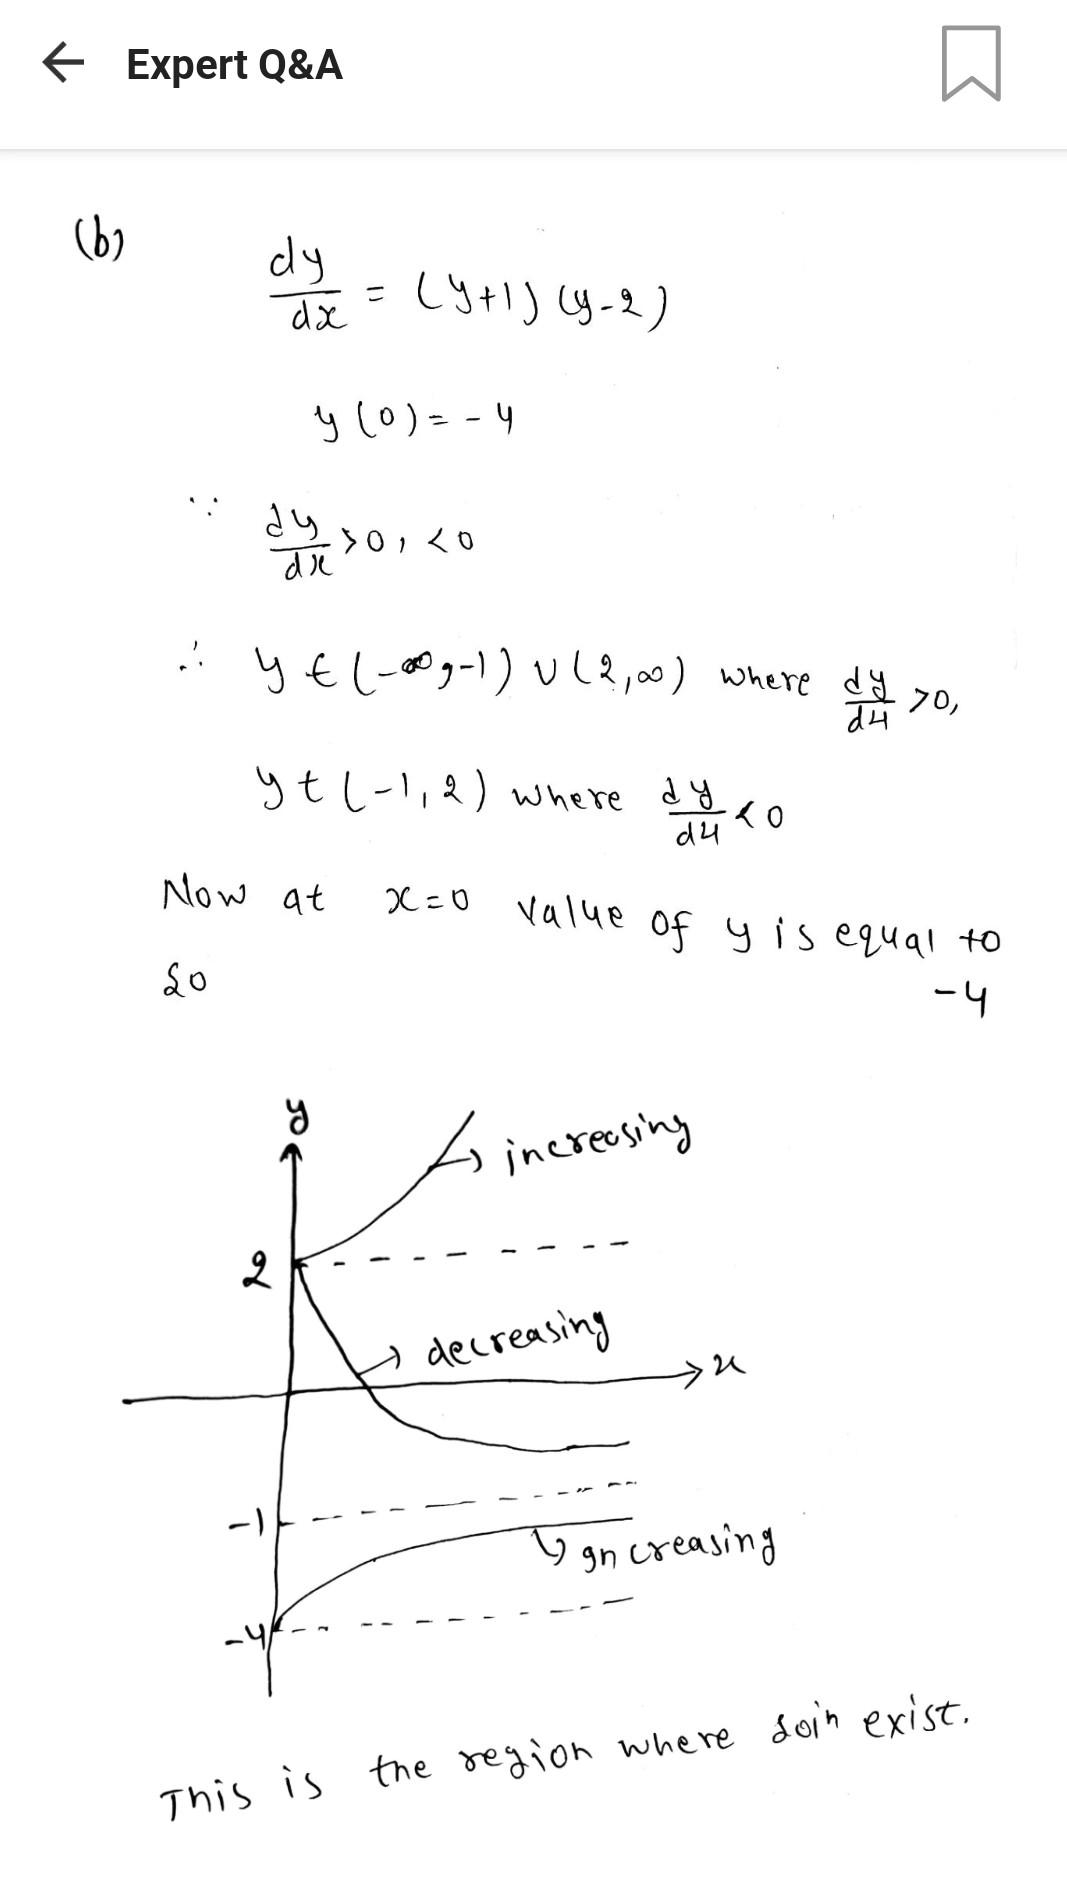 Expert Q&A
(b)
dy/dx = (y+1) (y-2)
y(0) = -4
∵ dy/dx >0, <0
∴ y ∈ (-∞, -1) ∪ (2, ∞) where dy/d4 >0,
y t (-1, 2) where dy/d4 <0
Now at x=0 value of y is equal to
-4
So
y
increasing
2
decreasing
x
-1
Increasing
-4
This is the region where soln exist.